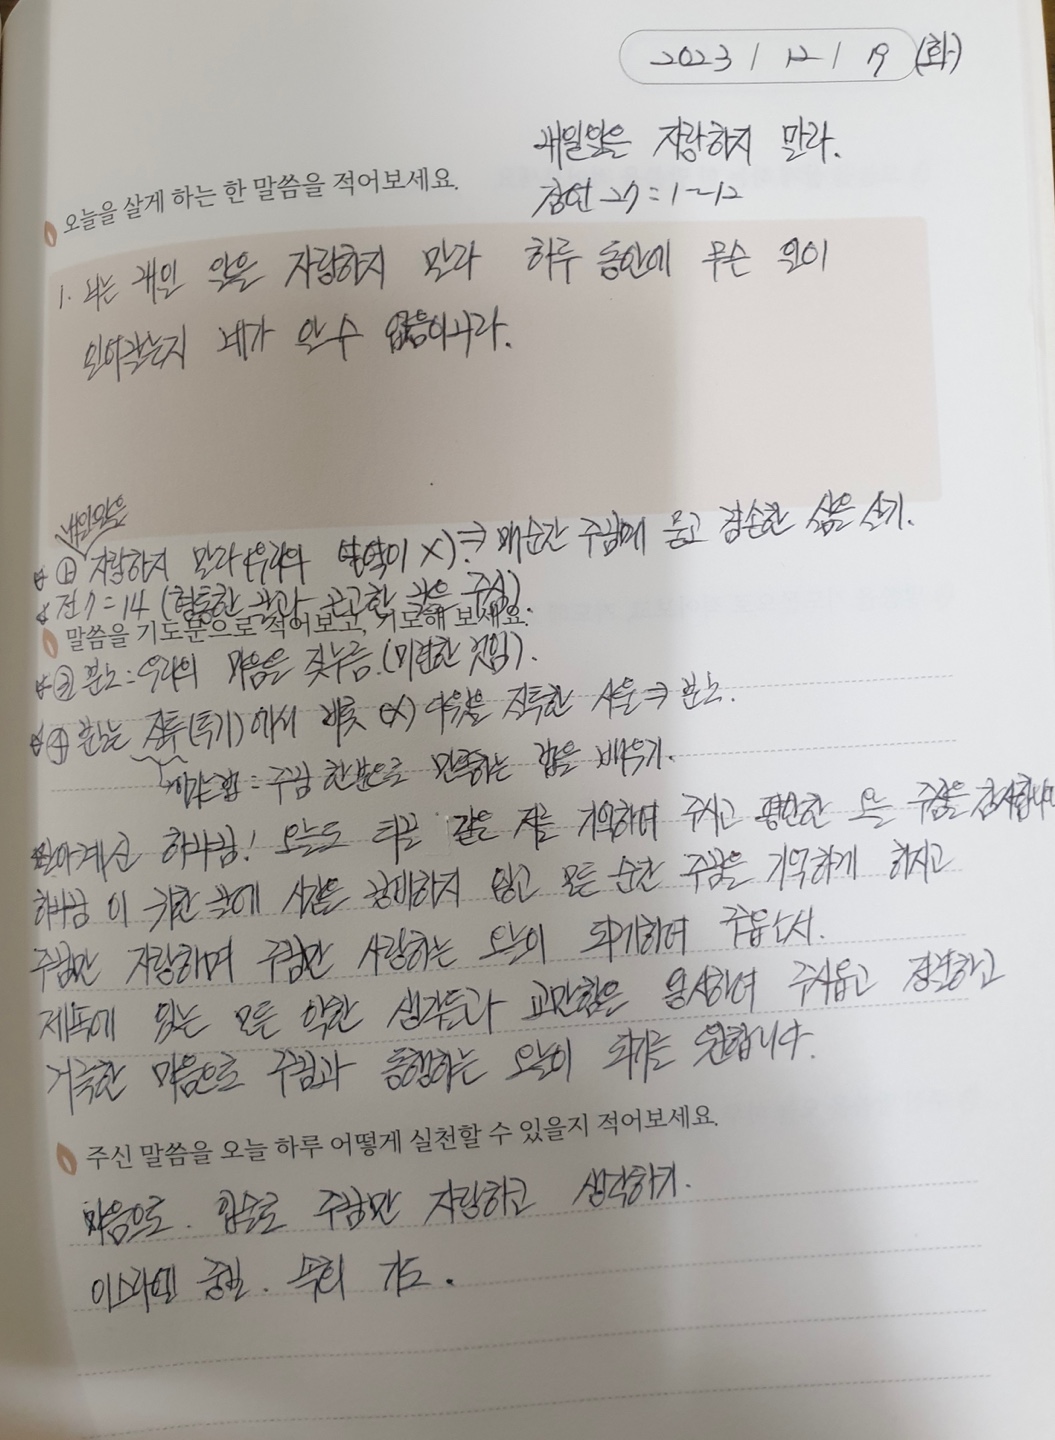 2023 / 12 / 19 (화)
내일일은 자랑하지 말라.
잠언 27:1~12
오늘을 살게 하는 한 말씀을 적어보세요.
1. 너는 내일 일을 자랑하지 말라 하루 동안에 무슨 일이
일어날는지 네가 알 수 없음이니라.
내일일은
① 자랑하지 말라 (우리의 영역이 X). ⇒ 매순간 주님께 묻고 겸손한 삶을 살기.
전 7:14 (형통한 날과 곤고한 날을 주심).
말씀을 기도문으로 적어보고, 기도해 보세요.
② 분노: 우리의 마음을 짓누름. (미련한 것임).
④ 분노는 질투(투기)에서 비롯 (X) 다윗을 질투한 사울 ⇒ 분노.
주님 한분으로 만족하는 법을 배우기.
살아계신 하나님! 오늘도 티끌 같은 저를 기억하여 주시고 평안한 오늘 주심을 감사합니다
하나님 이 귀한 날에 시간을 낭비하지 않고 모든 순간 주님을 기억하게 하시고
주님만 자랑하며 주님만 사랑하는 오늘이 되게하여 주옵소서.
제속에 있는 모든 악한 생각들과 교만함을 용서하여 주시옵고 정결하고
거룩한 마음으로 주님과 동행하는 오늘이 되기를 원합니다.
주신 말씀을 오늘 하루 어떻게 실천할 수 있을지 적어보세요.
마음으로. 입술로 주님만 자랑하고 생각하기.
이스라엘 중보. 속회 기도.